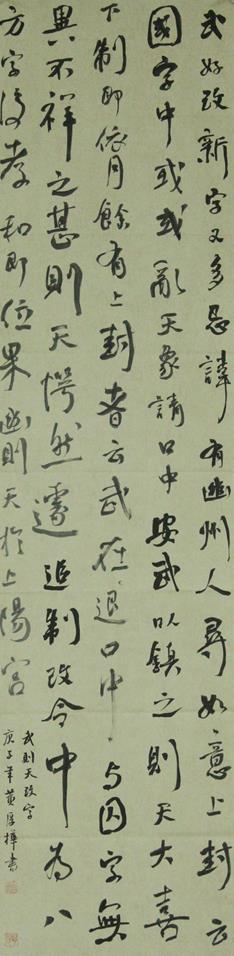 武好改新字又多忌諱有幽州人尋如意上封云
國字中或或亂天象請口中安武以鎮之則天大喜
下制即依月餘有上封者云武在退口中与囚字無
異不祥之甚則天愕然遽追制改令中為八
方字後孝和即位果幽則天於上陽宮
武則天改字
庚子年黄厚樟書